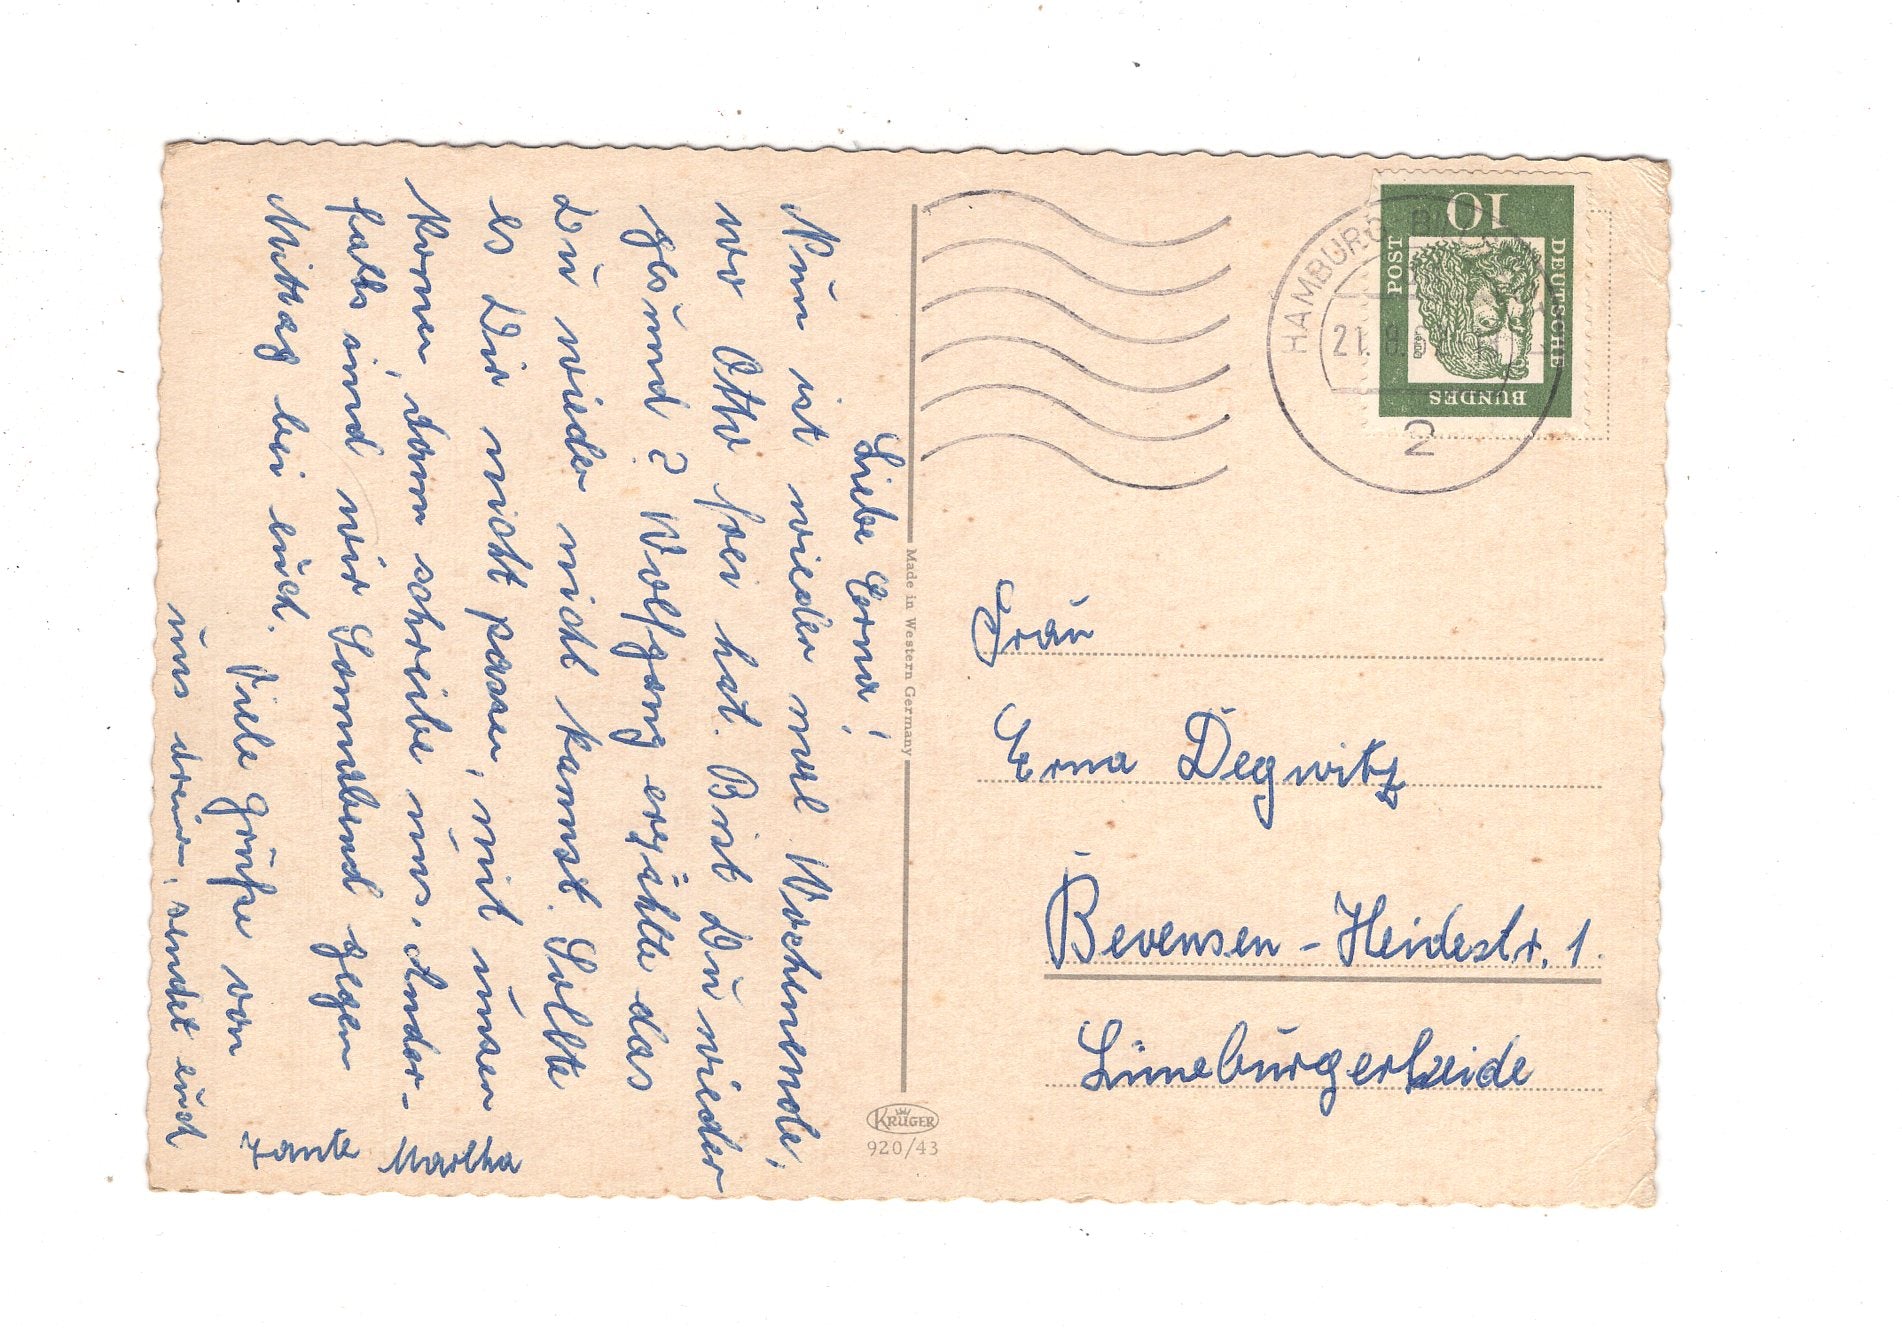 Liebe Erna!
Nun ist wieder mal Wochenende,
wo Otto frei hat. Bist Du wieder
gesund? Wolfgang erzählte das
Du wieder nicht kannst. Sollte
es Dir nicht passen, mit unsen
komen, dann schreibe uns. Ander-
falls sind wir Sonnabend gegen
Mittag bei euch.
Viele Grüße von
uns dreien, sendet euch
Tante Martha
Made in Western Germany
KRÜGER
920/43
HAMBURG
21.8.
2
10
DEUTSCHE
BUNDES
POST
Frau
Erna Degwitz
Bevensen - Heidestr. 1.
Lüneburgerheide